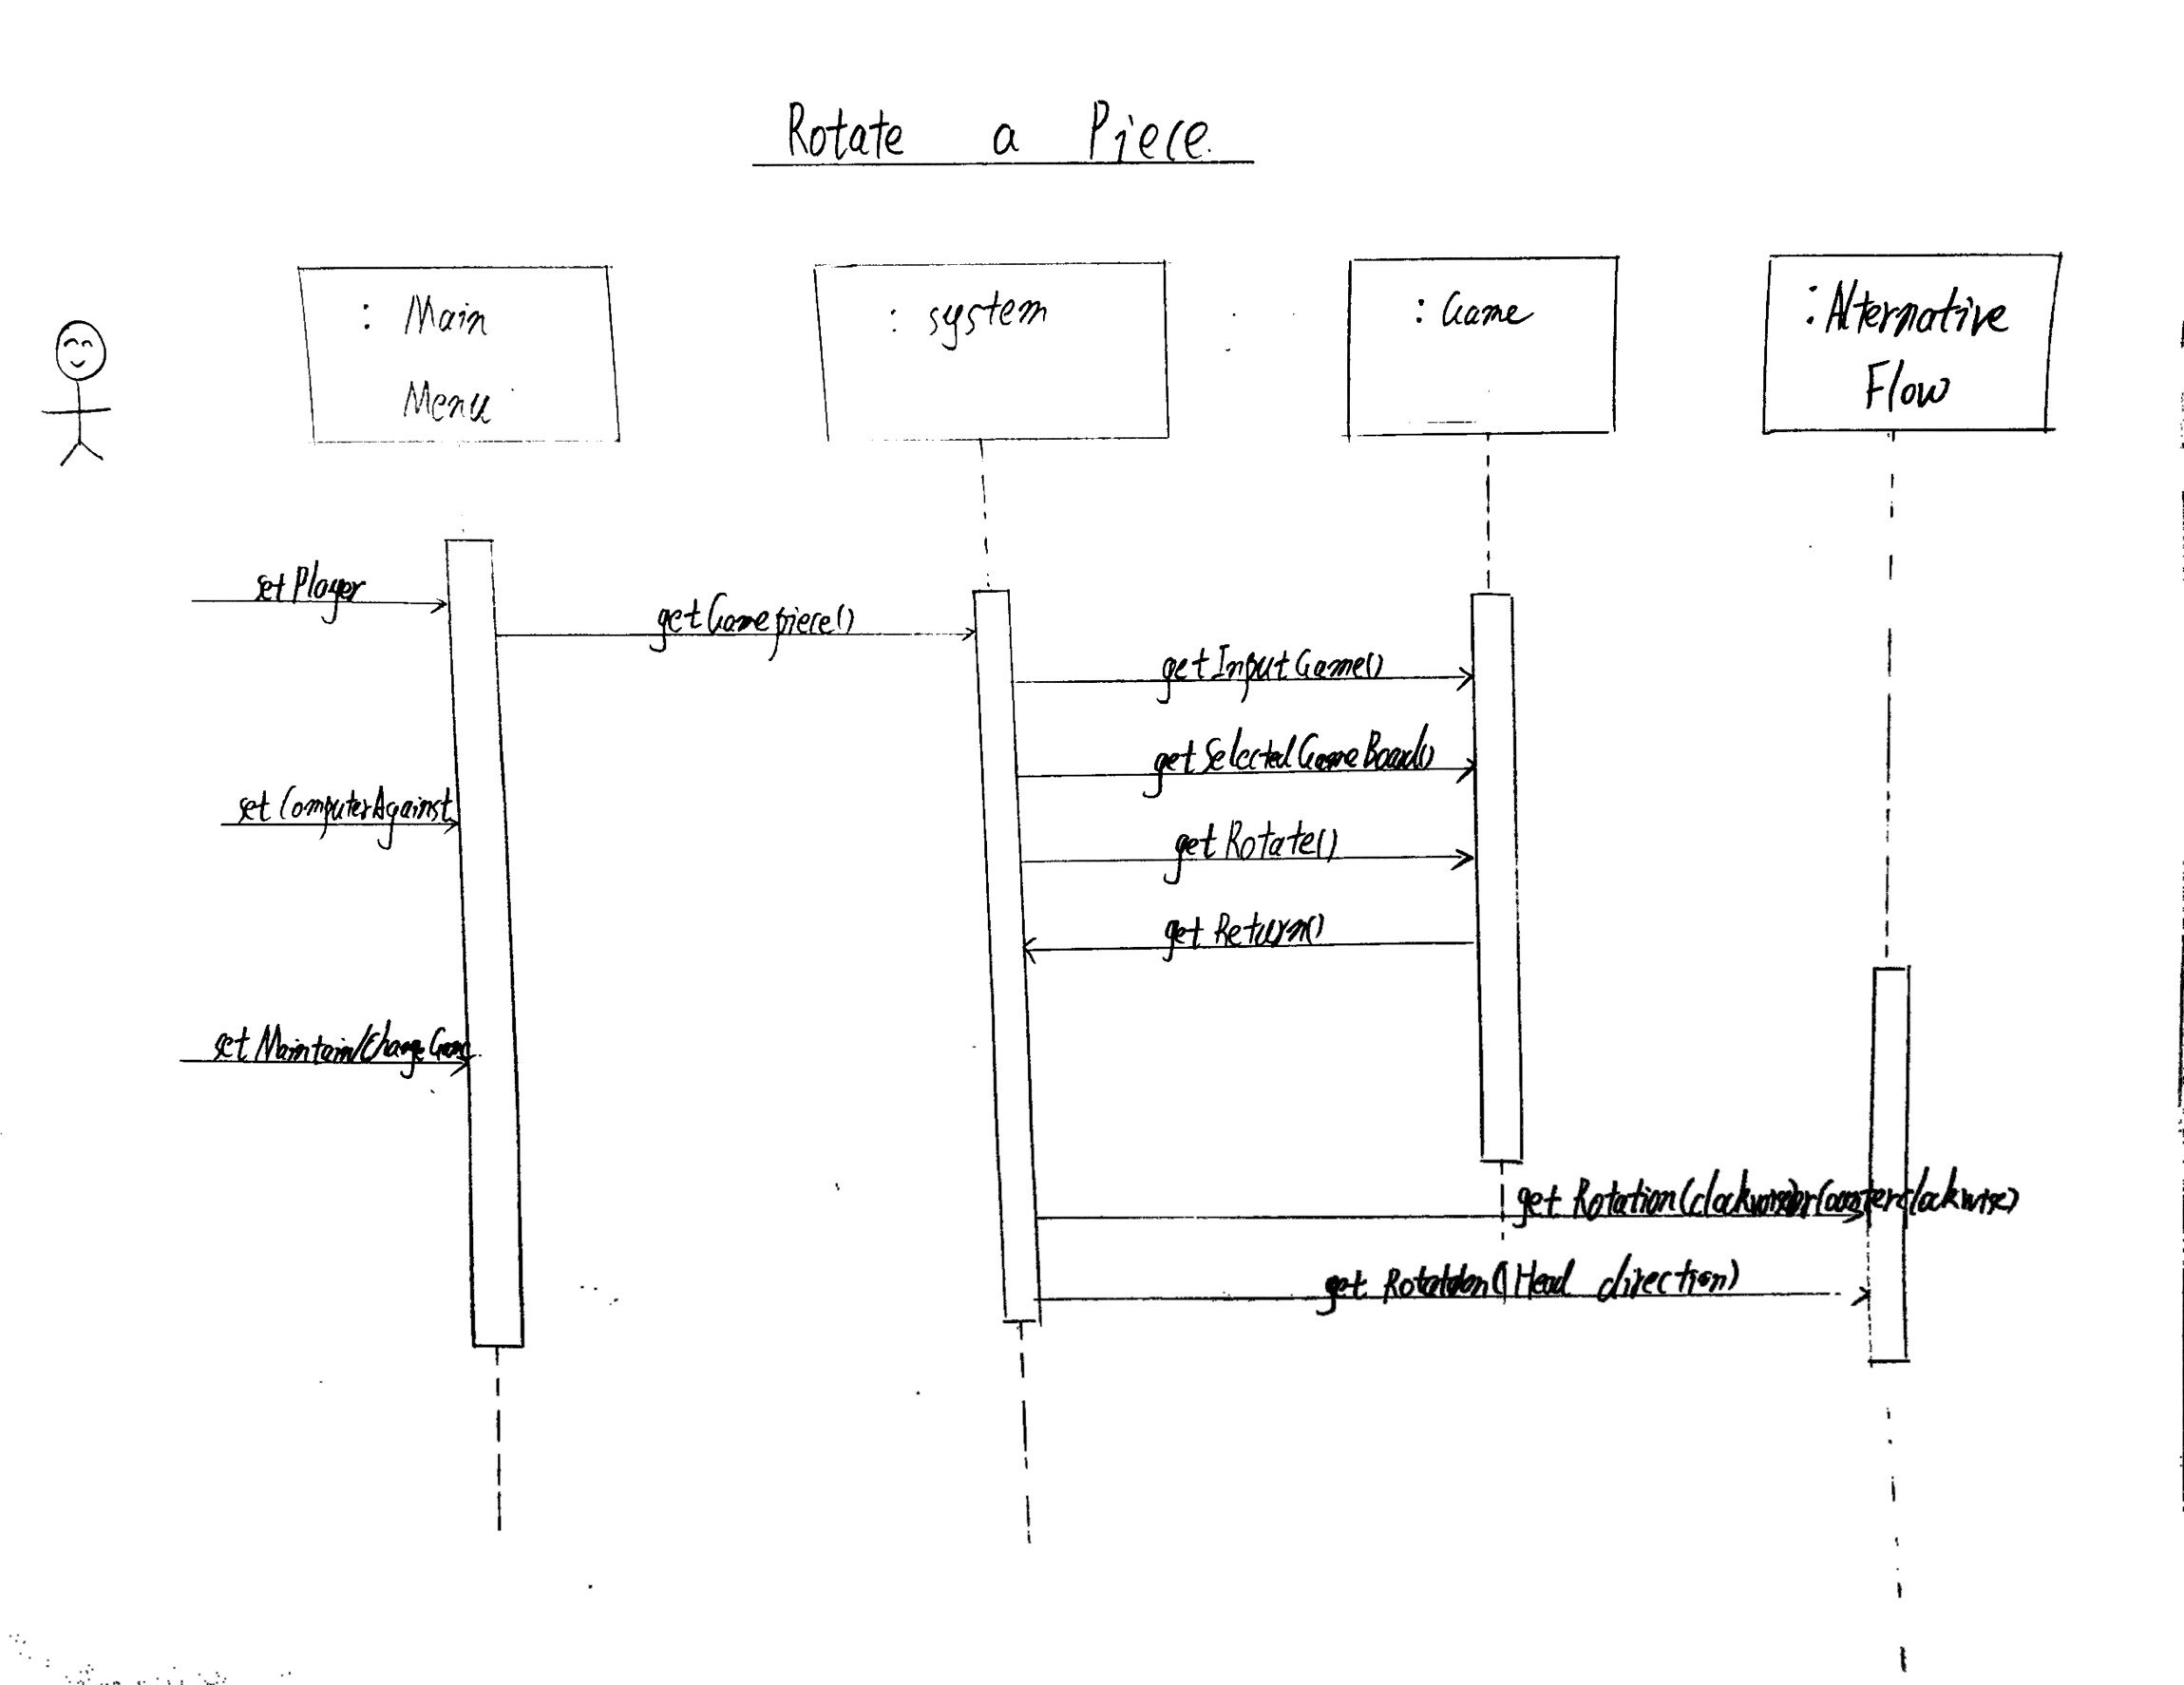 Rotate a Piece
: Main
Menu
: system
: Game
: Alternative
Flow
set Player
get Gamepiece()
get Input Game()
get Selected Game Board()
set Computer Against
get Rotate()
get Return()
set Maintain/Change Game
get Rotation(clockwise or counterclockwise)
get Rotation(Head direction)